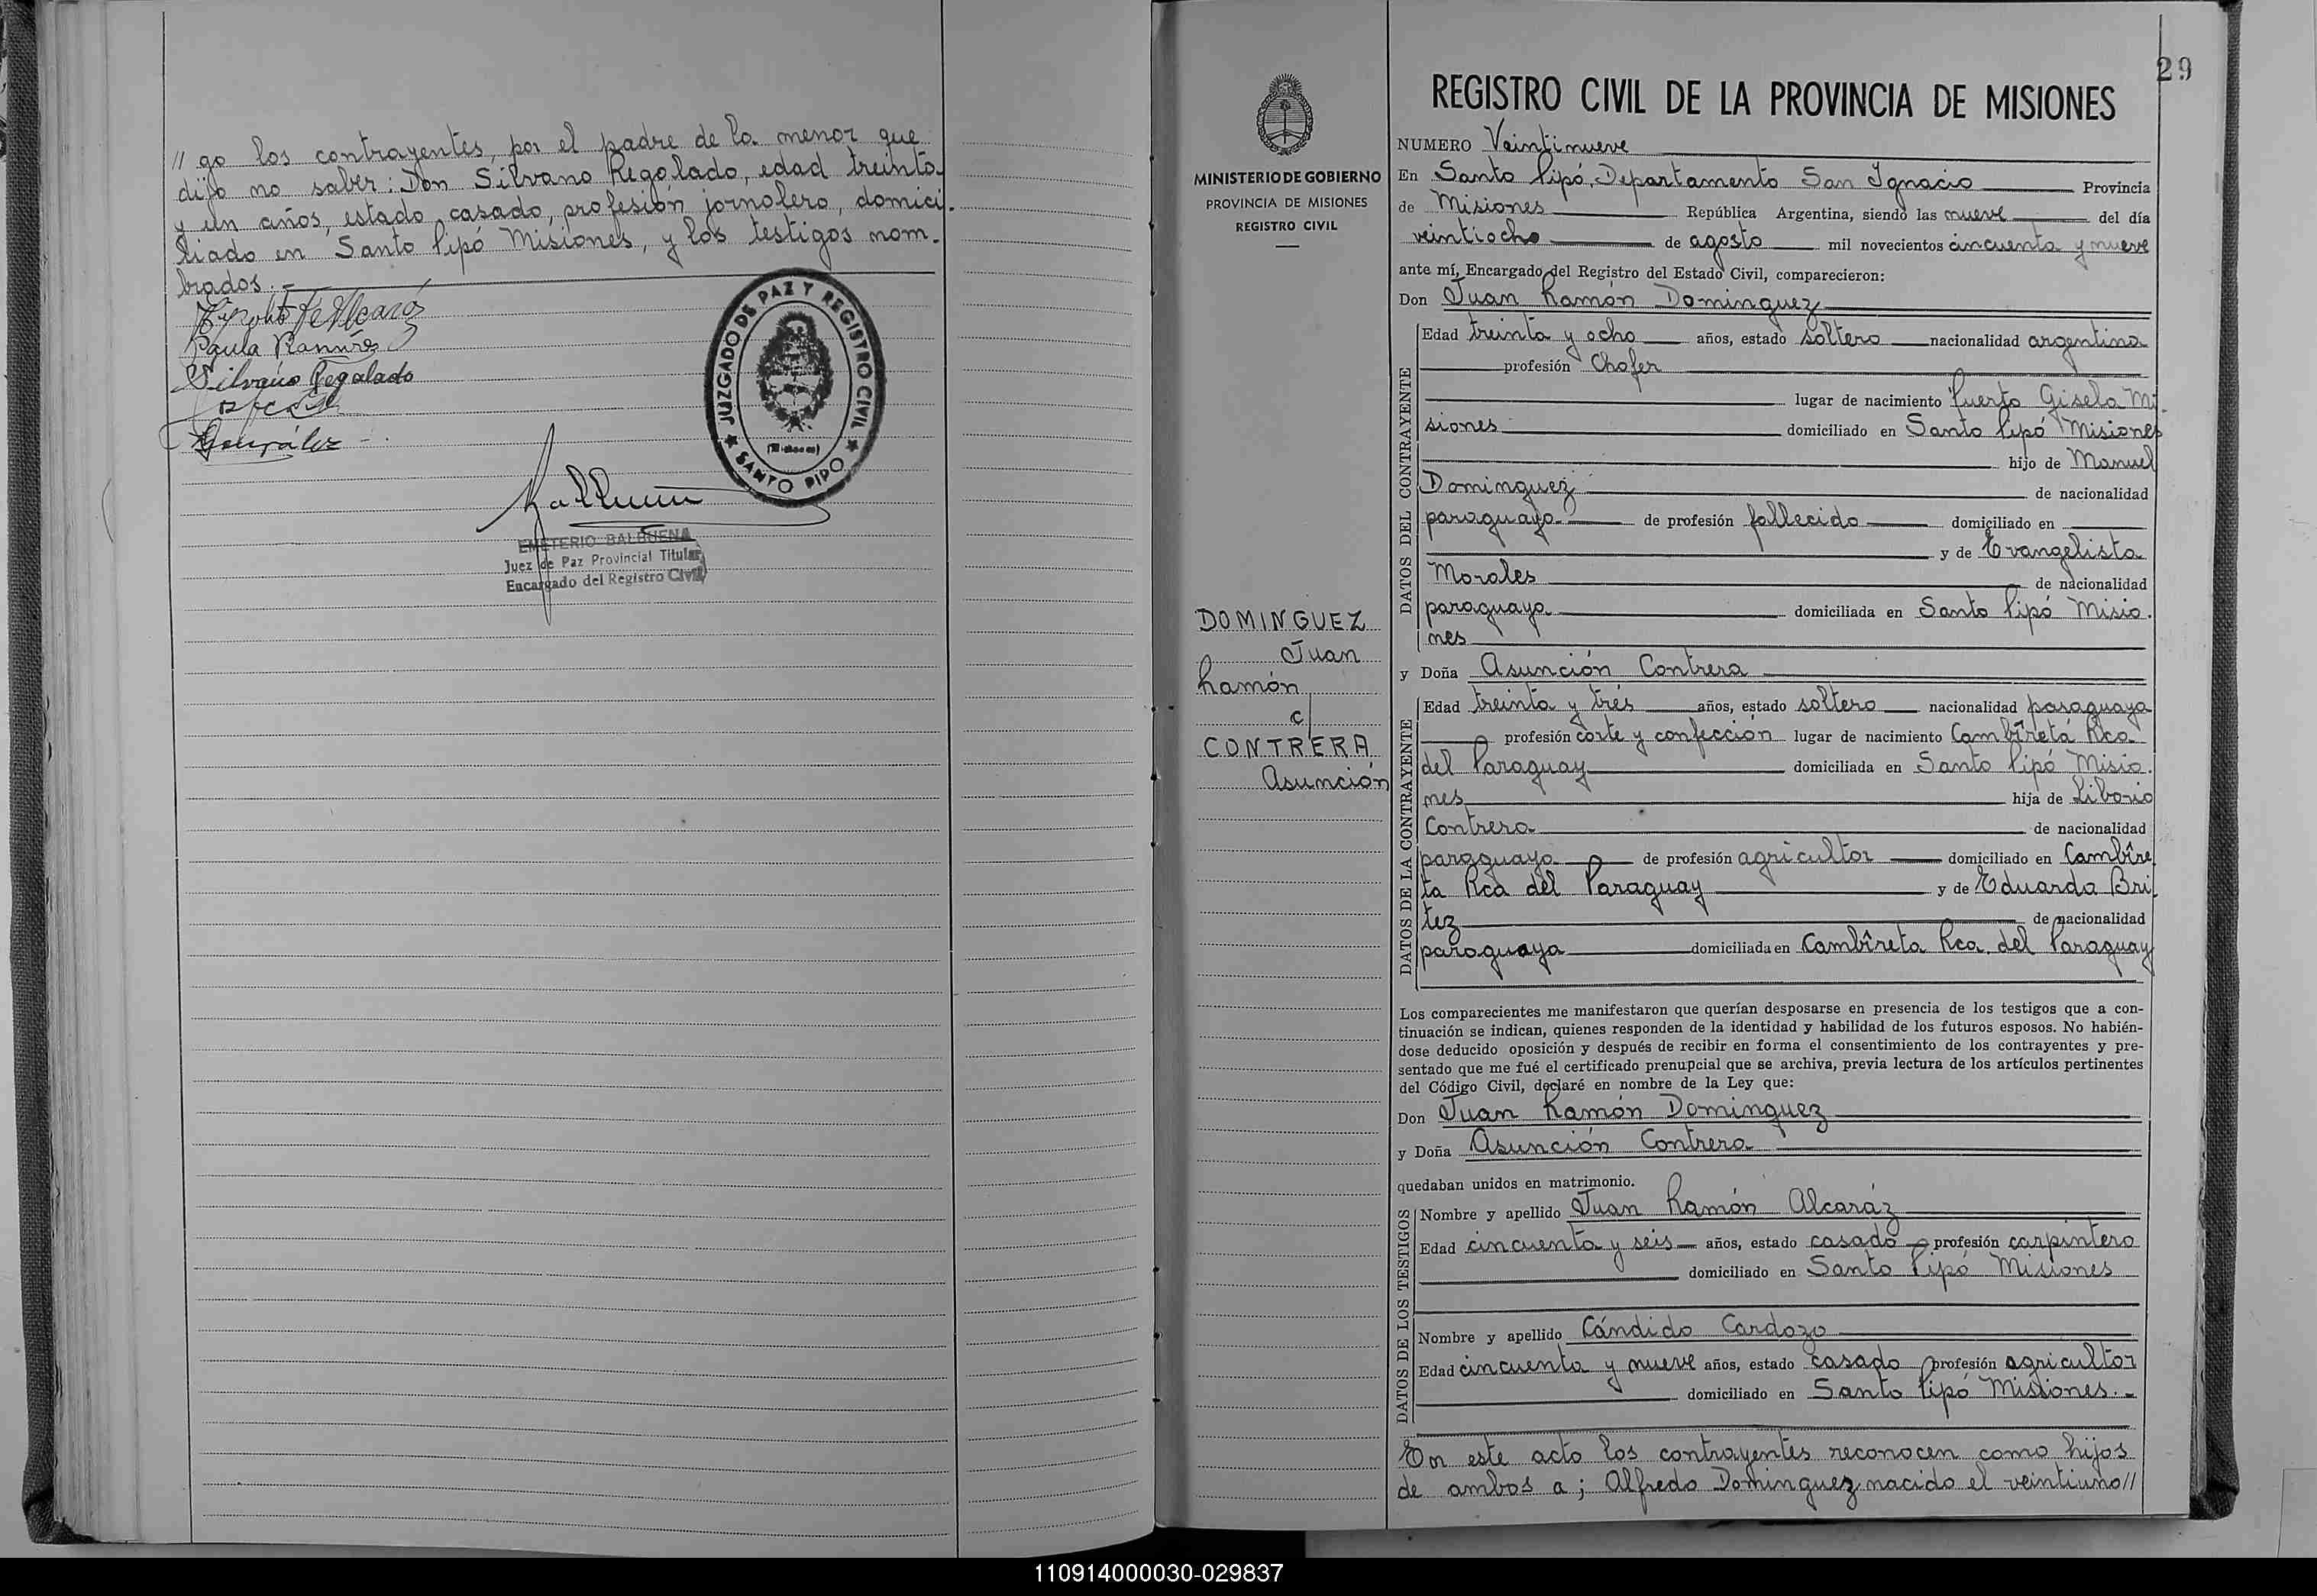 // go los contrayentes, por el padre de la menor que
dijo no saber: Don Silvano Regalado, edad treinta
y un años, estado casado, profesión jornalero, domici-
liado en Santo Pipó Misiones, y los testigos nom-
brados.-
Paula Ramírez
Silvano Regalado
González
JUZGADO DE PAZ Y REGISTRO CIVIL
(Misiones)
★ SANTO PIPO ★
EMETERIO BALBUENA
Juez de Paz Provincial Titular
Encargado del Registro Civil
MINISTERIO DE GOBIERNO
PROVINCIA DE MISIONES
REGISTRO CIVIL
DOMINGUEZ
Juan
Ramón
c/
CONTRERA
Asunción
29
REGISTRO CIVIL DE LA PROVINCIA DE MISIONES
NUMERO Veintinueve
En Santo Pipó, Departamento San Ignacio Provincia
de Misiones República Argentina, siendo las nueve del día
veintiocho de agosto mil novecientos cincuenta y nueve
ante mí, Encargado del Registro del Estado Civil, comparecieron:
Don Juan Ramón Dominguez
DATOS DEL CONTRAYENTE
Edad treinta y ocho años, estado soltero nacionalidad argentina
profesión Chofer
lugar de nacimiento Puerto Gisela Mi-
siones domiciliado en Santo Pipó Misiones
hijo de Manuel
Dominguez de nacionalidad
paraguaya de profesión fallecido domiciliado en
y de Evangelista
Morales de nacionalidad
paraguaya domiciliada en Santo Pipó Misio-
nes
y Doña Asunción Contrera
DATOS DE LA CONTRAYENTE
Edad treinta y trés años, estado soltero nacionalidad paraguaya
profesión corte y confección lugar de nacimiento Cambîretá Rca
del Paraguay domiciliada en Santo Pipó Misio-
nes hija de Liborio
Contrera de nacionalidad
paraguaya de profesión agricultor domiciliado en Cambîre-
ta Rca del Paraguay y de Eduarda Bri-
tez de nacionalidad
paraguaya domiciliada en Cambîreta Rca. del Paraguay
Los comparecientes me manifestaron que querían desposarse en presencia de los testigos que a con-
tinuación se indican, quienes responden de la identidad y habilidad de los futuros esposos. No habién-
dose deducido oposición y después de recibir en forma el consentimiento de los contrayentes y pre-
sentado que me fué el certificado prenupcial que se archiva, previa lectura de los artículos pertinentes
del Código Civil, declaré en nombre de la Ley que:
Don Juan Ramón Dominguez
y Doña Asunción Contrera
quedaban unidos en matrimonio.
DATOS DE LOS TESTIGOS
Nombre y apellido Juan Ramón Alcaráz
Edad cincuenta y seis años, estado casado profesión carpintero
domiciliado en Santo Pipó Misiones
Nombre y apellido Cándido Cardozo
Edad cincuenta y nueve años, estado casado profesión agricultor
domiciliado en Santo Pipó Misiones.-
En este acto los contrayentes reconocen como hijos
de ambos a; Alfredo Dominguez nacido el veintiuno//
110914000030-029837